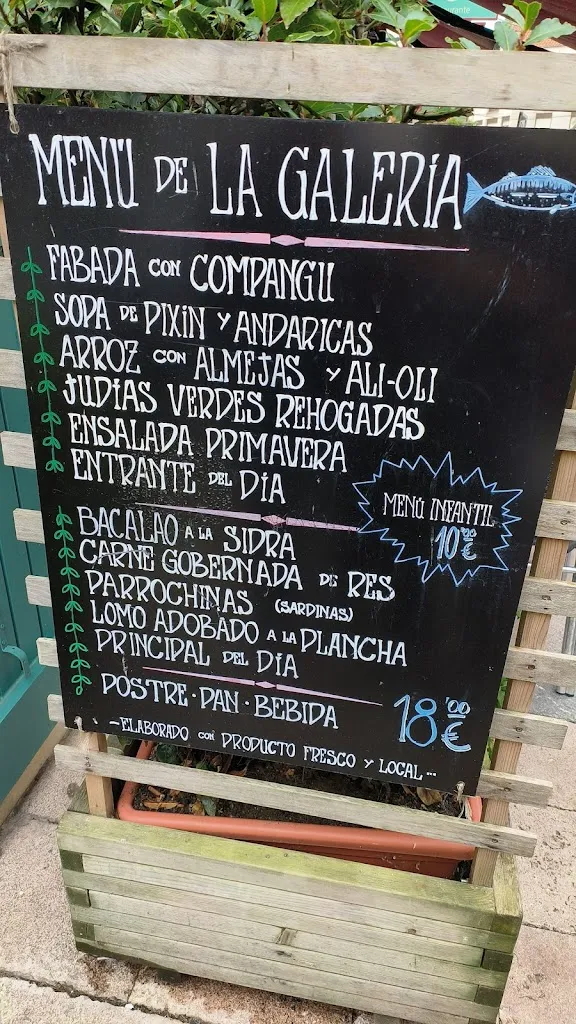 MENÚ DE LA GALERÍA
FABADA CON COMPANGU
SOPA DE PIXIN Y ANDARICAS
ARROZ CON ALMEJAS Y ALI-OLI
JUDIAS VERDES REHOGADAS
ENSALADA PRIMAVERA
ENTRANTE DEL DÍA
MENÚ INFANTIL
10'00€
BACALAO A LA SIDRA
CARNE GOBERNADA DE RES
PARROCHINAS (SARDINAS)
LOMO ADOBADO A LA PLANCHA
PRINCIPAL DEL DÍA
POSTRE · PAN · BEBIDA
18'00€
-ELABORADO CON PRODUCTO FRESCO Y LOCAL...